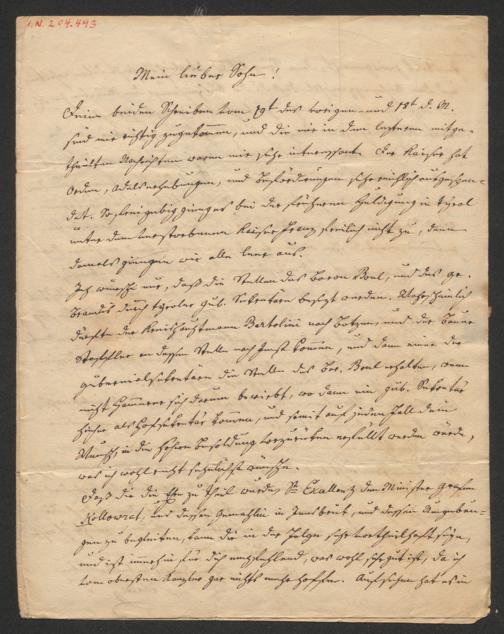 I.N. 204.443
Mein lieber Sohn!
Deine beiden Schreiben vom 19t des vorigen und 18t d. M.
sind mir richtig zugekommen, und die mir in dem letzteren mitge-
theilten Nachrichten waren mir sehr interessant. Der Kaiser hat
Orden, Adelserhebungen, und Beförderungen sehr reichlich ausgespen-
det. So ging es bei der früheren Huldigung in Tyrol
unter dem verstorbenen Kaiser Franz freilich nicht zu, denn
damals gingen wir alle leer aus.
Ich wünsche nur, daß die Stellen des Baron Buol, und des
Brandis durch tyroler Gub. Sekretäre besetzt werden. Wahrscheinlich
dürfte der Kreishauptmann Bartolini nach Botzen, und der Baron
an dessen Stelle nach Imst kommen, und dann einer der
Gubernialsekretäre die Stelle des Bar. Buol erhalten, wenn
nicht sich darum bewirbt, wo dann ein Gub. Sekretär
hieher als Hofsekretär kommen, und somit auf jeden Fall dein
Wunsch in die höhere Besoldung vorzurücken erfüllt werden würde,
was ich wohl recht sehnlichst wünsche.
Daß dir die Ehre zu Theil wurde, Sr Exellenz den Minister Grafen
Kollowrat, und dessen Gemahlin in Innsbruck, und dessen Umgebun-
gen zu begleiten, kann dir in der Folge sehr vortheilhaft sein,
und ist immerhin für dich empfehlend, was wohl sehr gut ist, da ich
vom obersten Kanzler gar nichts mehr hoffe. Aufsehen hat es in